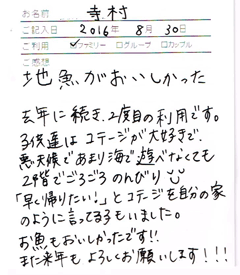 お名前 寺村
ご記入日 2016年 8月 30日
ご利用 ✓ファミリー □グループ □カップル
ご感想
地魚がおいしかった
去年に続き、2度目の利用です。
子供達はコテージが大好きで、
悪天候であまり海で遊べなくても
2階でごろごろのんびり
「早く帰りたい!」とコテージを自分の家
のように言ってる子もいました。
お魚もおいしかったです!!
また来年もよろしくお願いします!!!